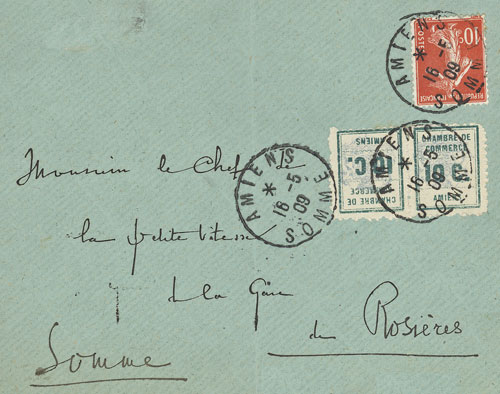 10c
POSTES
REPUBLIQUE FRANÇAISE
AMIENS
*
16 -5
09
SOMME
CHAMBRE DE
COMMERCE
10 C.
AMIENS
CHAMBRE DE
COMMERCE
10 C.
AMIENS
AMIENS
*
16 -5
09
SOMME
AMIENS
*
16 -5
09
SOMME
Monsieur le Chef de
la petite Vitesse
de la Gare
de Rosières
Somme